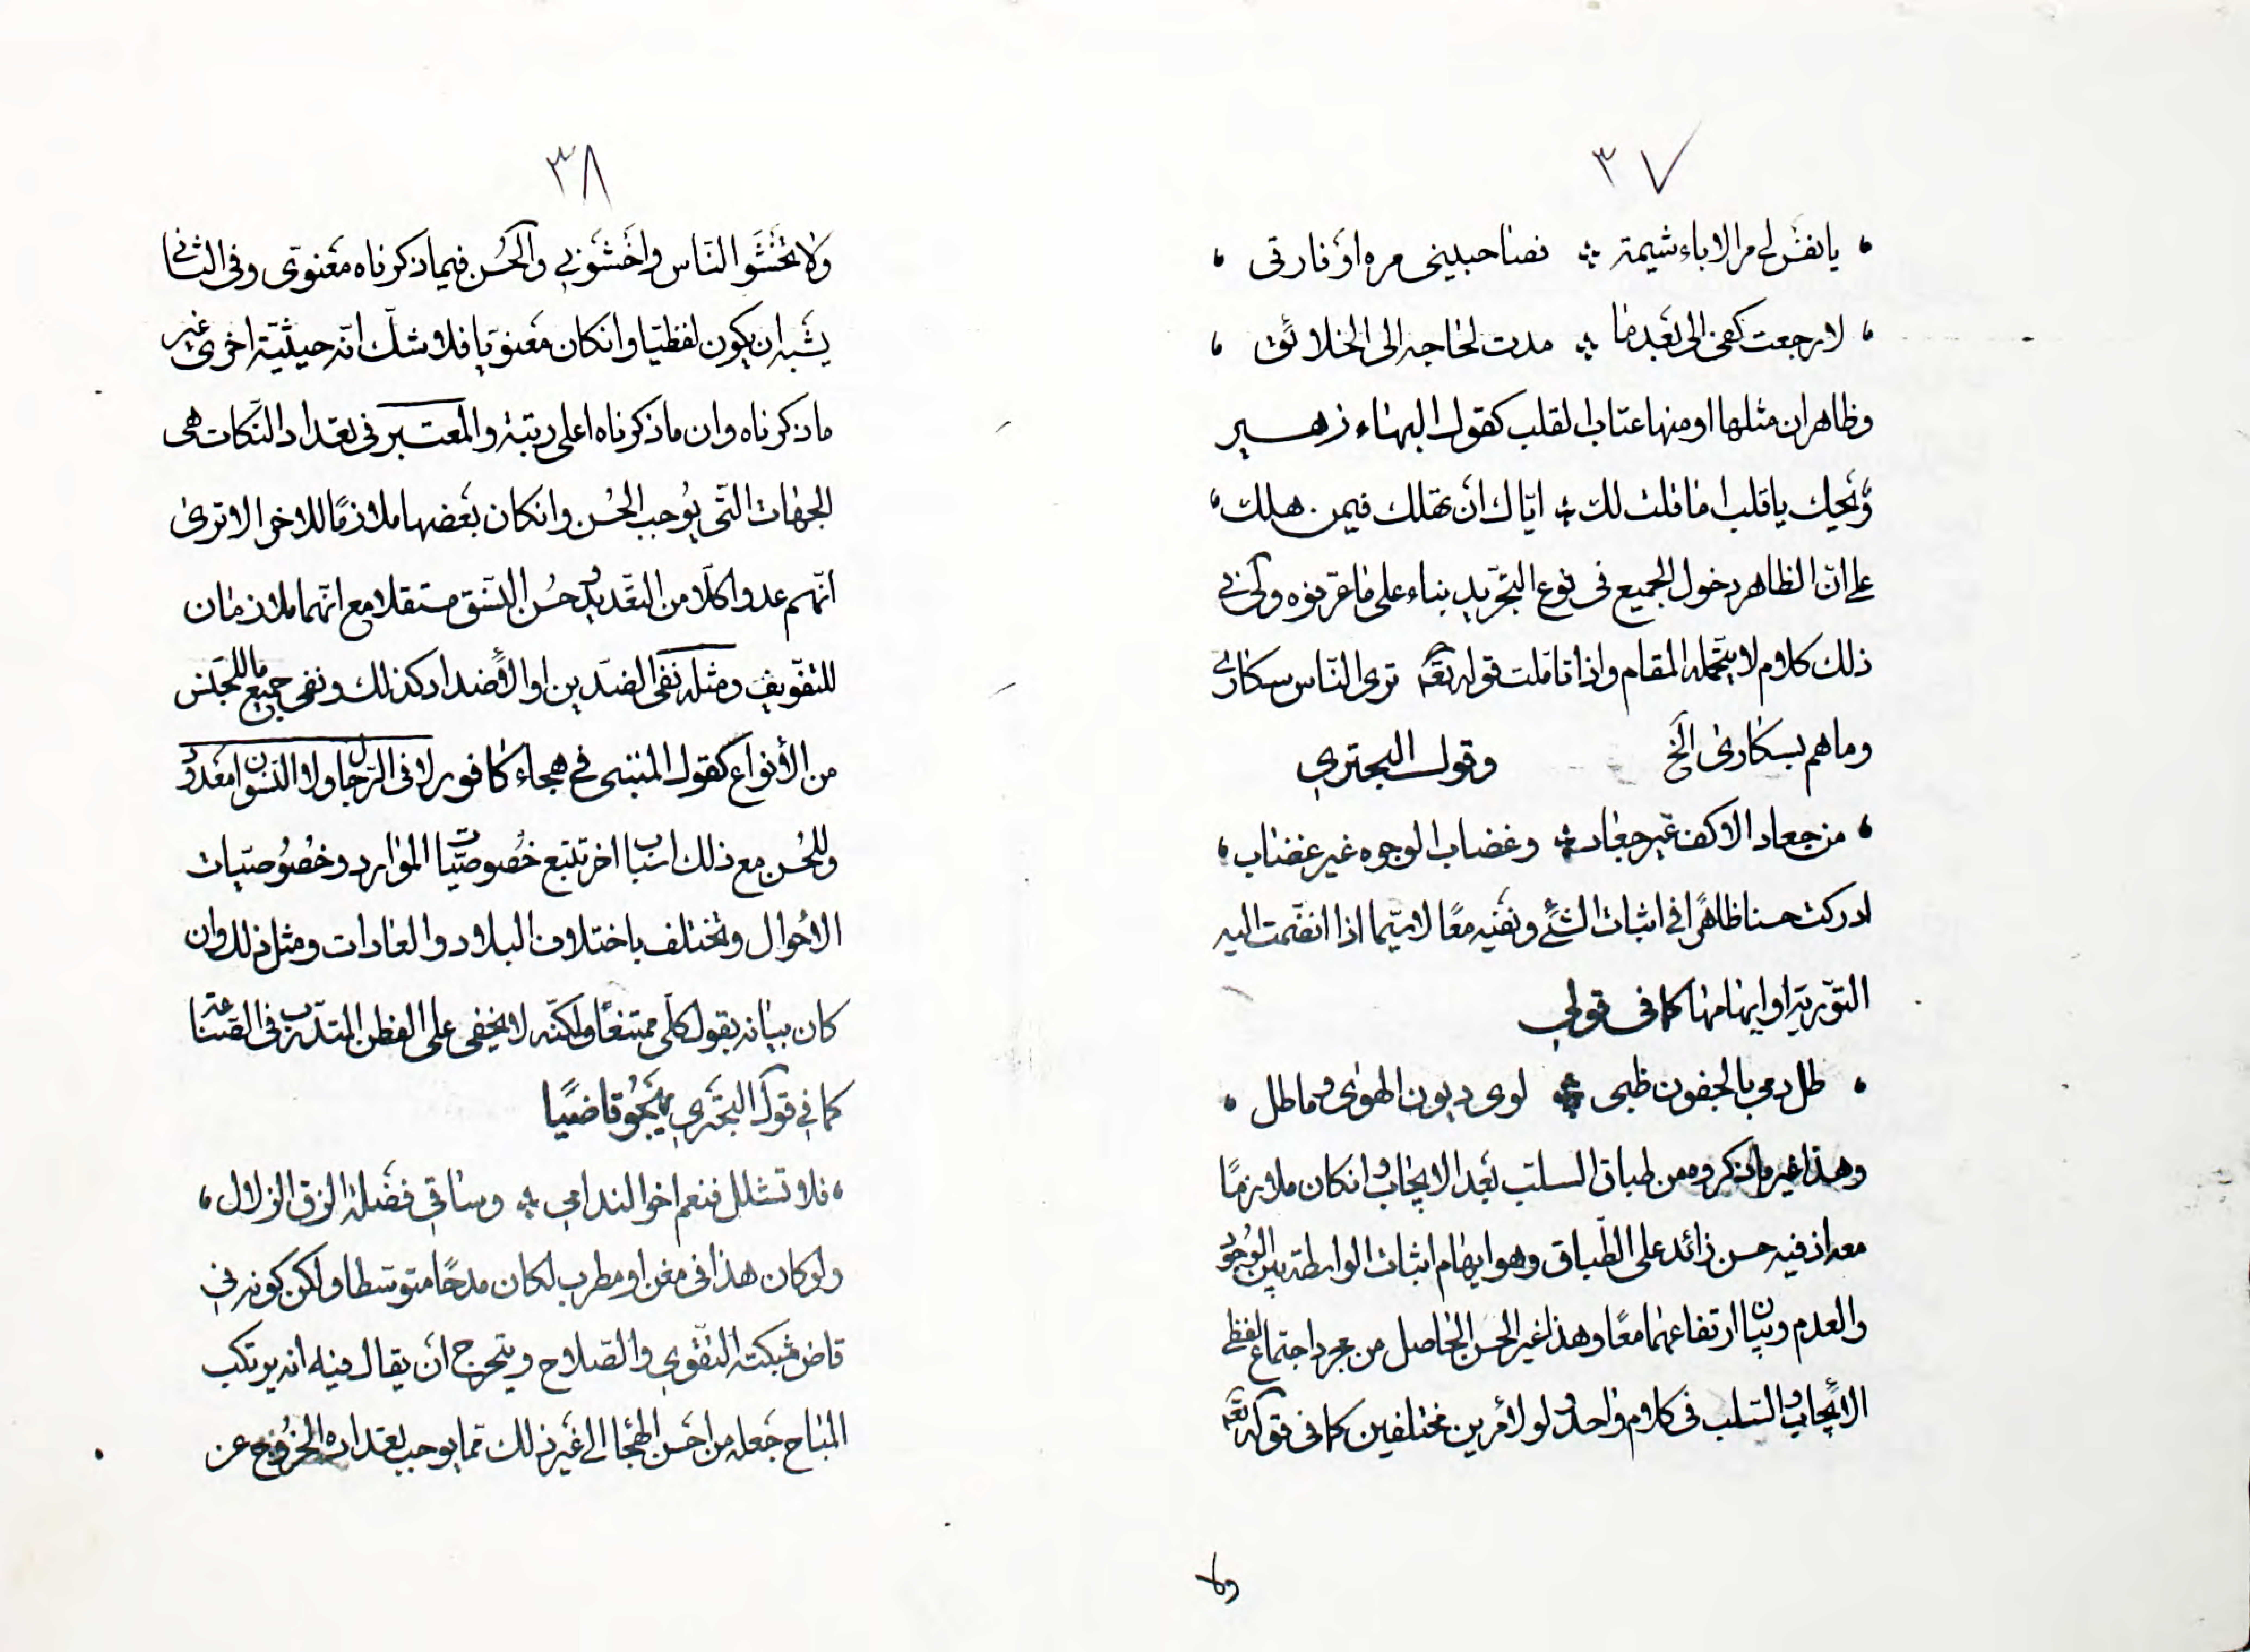 ٣٧
يا نفس لي مر الاباء شيمة نصاحبيني مره او فارقي
لا رجعت كفي الى بعدما مدت لحاجه الى الخلائق
وظاهر ان مثلها او منها عتاب القلب كقول البهاء زهير
وَيحيك يا قلب اما قلت لك ايّاك ان تهلك فيمن هلك
على انّ الظاهر دخول الجميع فى نوع التجّريد بناء على ما عرّفوه ولى فى
ذلك كلام لا يتحمله المقام واذا تاملت قوله تعه ترى النّاس سكارى
وما هم بسكارى الخ وقول البحتري
من جعاد الاكف غير جعاد وغضاب الوجوه غير غضاب
ادركت حسنا ظاهرًا فى اثبات الشئ ونفيه معًا لا سيّما اذا انضمت اليه
التوّرية او ايهامها كما فى قولي
طل دمي بالجفون ظبى لوى ديون الهوى وماطل
وهذا غير ما ذكروه من طباق السلب بعد الايجاب وانكان ملازمًا
معه اذ فيه حسن زائد على الطّباق وهو ايهام اثبات الواسطة بين الوجود
والعدم وبيان ارتفاعهما معًا وهذا غير الحسن الحاصل من مجرد اجتماع لفظي
الايجاب والسّلب فى كلام واحد ولو لامرين مختلفين كما فى قوله تعه
ولا
٣٨
وَلا تَخشَو النّاس واخشَوني والحُسن فيما ذكرناه معنوى وفى الثانى
يشبه ان يكون لفظيّا وانكان معنويّا فلا شكّ انّه حيثيّة اخرى غير
ما ذكرناه وان ما ذكرناه اعلى رتبة والمعتبر فى تعداد النكات هى
الجهات التى يوُجب الحُسن وانكان بعضها ملازمًا للاخر الا ترى
انّهم عدوا كلّا من التعّديد وحسُن النسق مستقلا مع انّهما ملازمان
للتفّويف ومثله نفى الضدّين او الأضداد كذلك ونفى جميع ما للجنس
من الأنواع كقول المتنبى فى هجاء كافور لا فى الرّجال ولا النسوان معدود
وللحُسن مع ذلك اسباب اخر تتبع خصُوصيّات الموارد وخصُوصيّات
الاحوال وتختلف باختلاف البلاد والعادات ومثل ذلك وان
كان بيانه بقول كلّى ممتنعًا ولكنّه لا يخفى على الفطن المتدّرب فى الصناعة
كما في قول البحتري يهجُو قاضيًا
فلا تشلل فنعم اخو الندامي وساقي فضلة الزق الزلال
ولو كان هذا فى مغن او مطرب لكان مدحًا متوسّطا ولكن كونه فى
قاض شبكته التّقوى والصّلاح ويتحرج ان يقال فيه انه يرتكب
المباح جعله من احسن الهجا الى غير ذلك ممّا يوجب تعداده الخرُوج عن